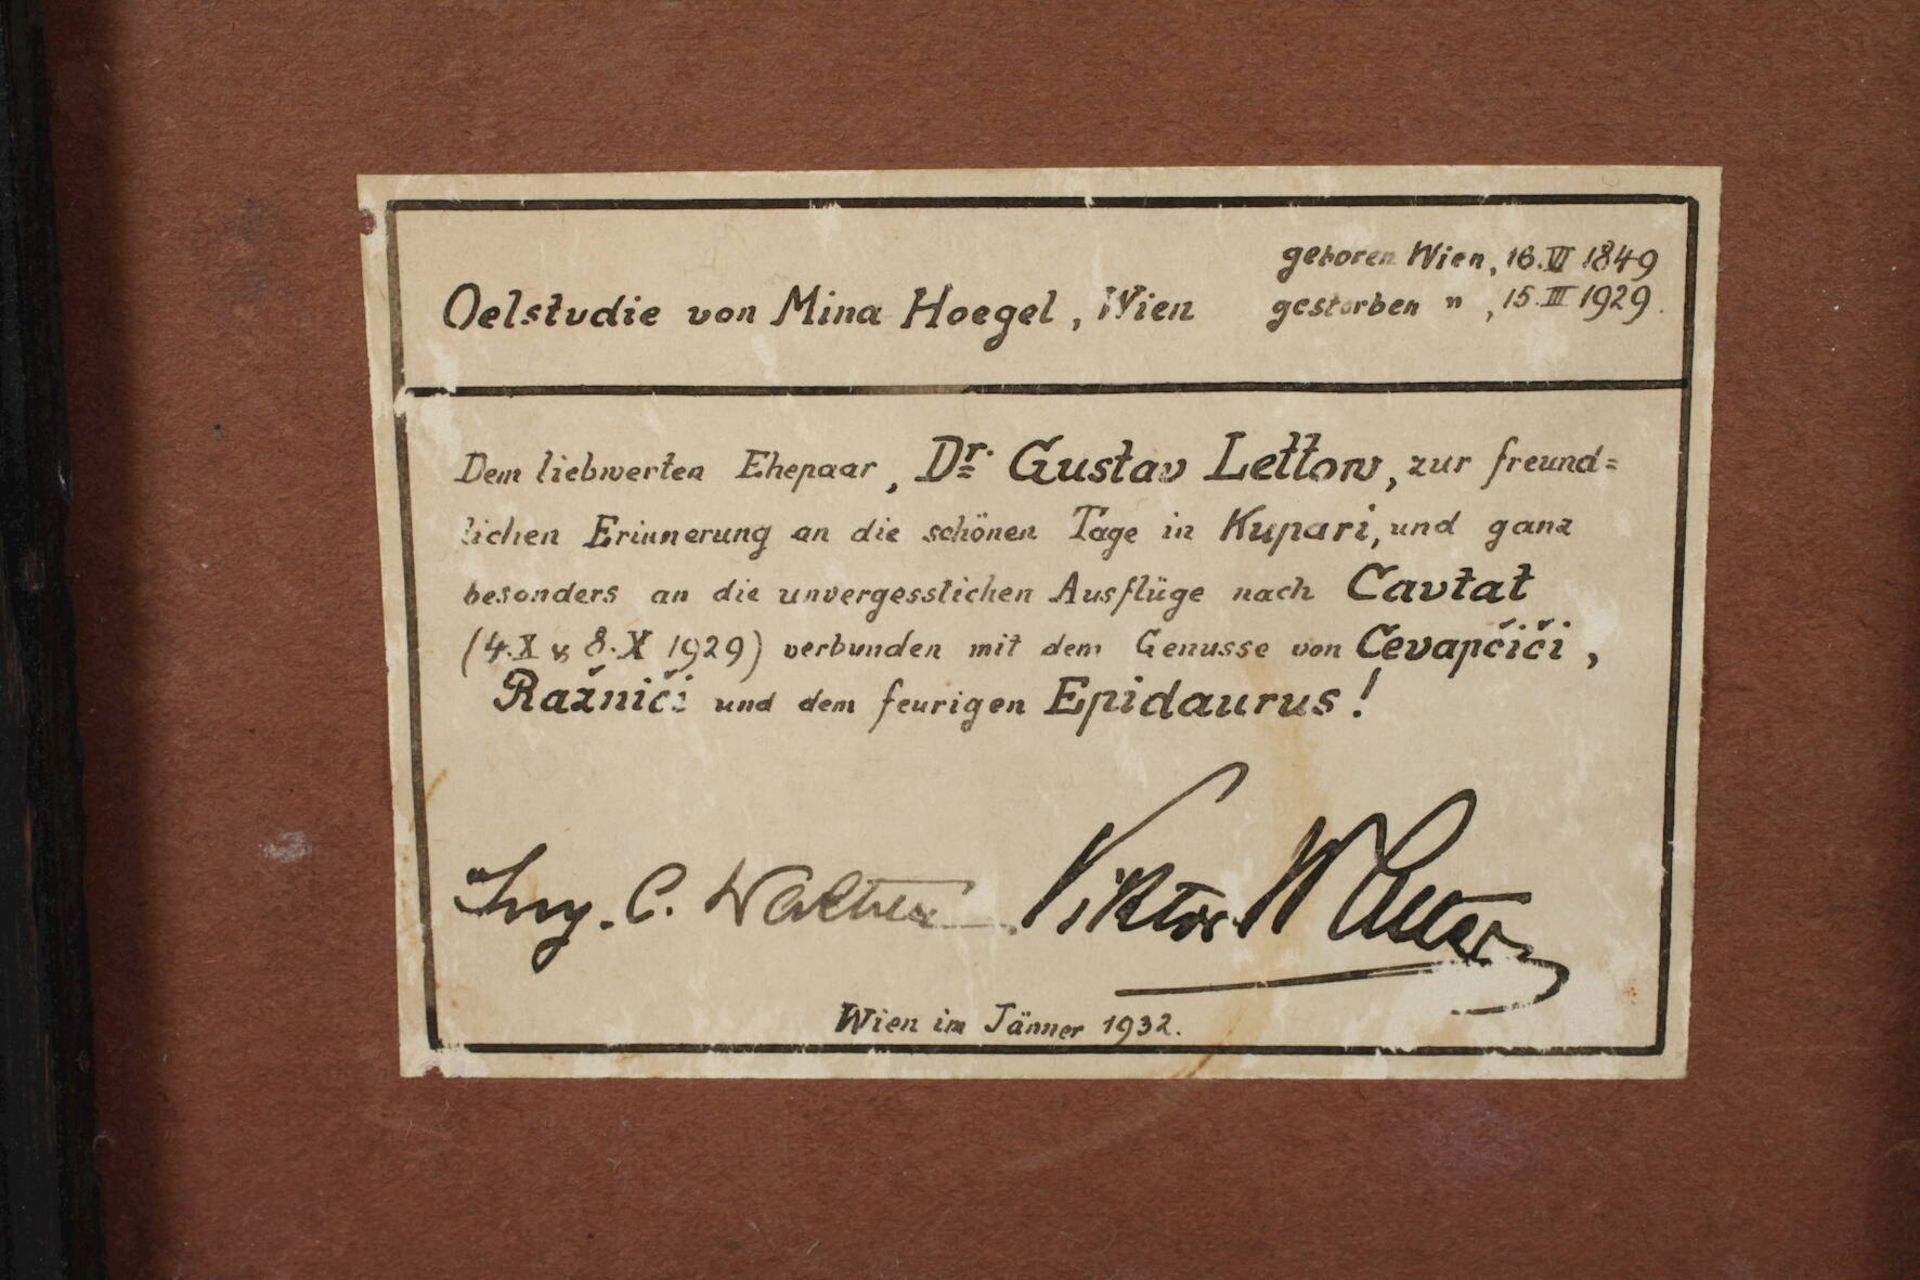 geboren Wien, 16.VI 1849
Oelstudie von Mina Hoegel, Wien
gestorben " , 15.III 1929.
Dem liebwerten Ehepaar, Dr. Gustav Lettow, zur freund=
lichen Erinnerung an die schönen Tage in Kupari, und ganz
besonders an die unvergesslichen Ausflüge nach Cavtat
(4.X & 8.X 1929) verbunden mit dem Genusse von Cevapčiči,
Ražniči und dem feurigen Epidaurus!
Ing. C. Walter Viktor Walter
Wien im Jänner 1932.